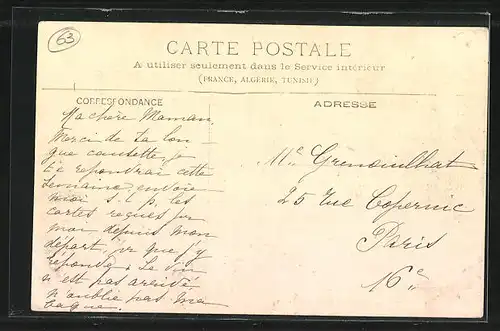 63
CARTE POSTALE
A utiliser seulement dans le Service intérieur
(FRANCE, ALGÉRIE, TUNISIE)
CORRESPONDANCE
Ma chère Maman,
Merci de ta lon-
gue causette, je
t'y repondrai cette
semaine, envoie
moi s. l. p. les
cartes reçues par
moi depuis mon
départ, pr que j'y
réponde. Le vin
n'est pas arrivé
n'oublie pas ma
bague.
ADRESSE
Me Grenouilhat
25 rue Copernic
Paris
16e